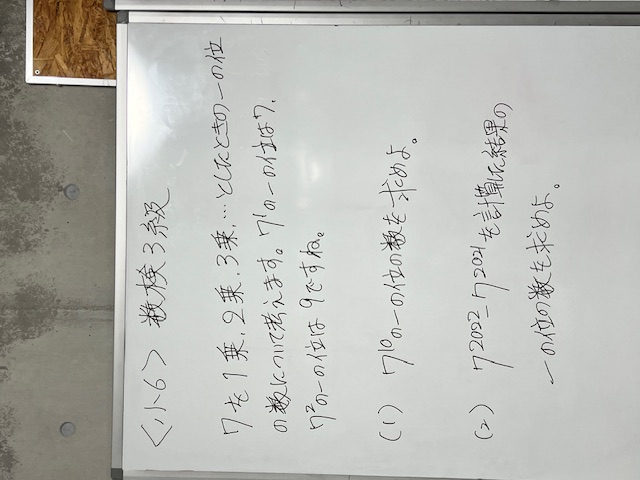 〈小6〉 数検3級
7を1乗、2乗、3乗、…としたときの一の位
の数について考えます。7¹の一の位は7、
7²の一の位は9ですね。
(1) 7¹⁰の一の位の数を求めよ。
(2) 7²⁰⁵²-7²⁰²¹を計算した結果の
一の位の数を求めよ。